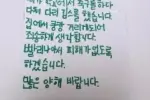 축구를 하다
다쳐 다리 깁스를 했습니다.
집에서 쿵쿵 거리게되어
죄송하게 생각합니다.
밤에 피해가 없도록
하겠습니다.
많은 양해 바랍니다.